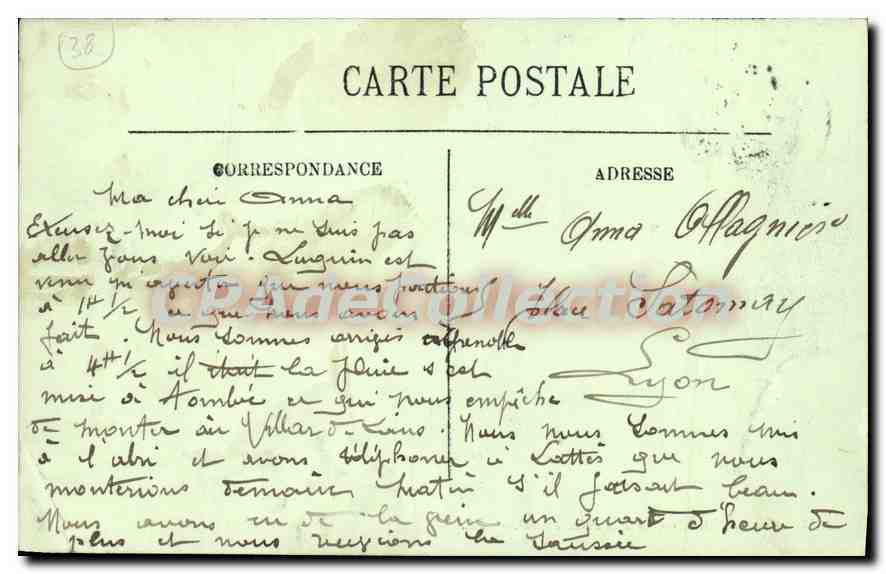 38
CARTE POSTALE
CORRESPONDANCE
ADRESSE
Ma cheri Anna
Excusez-moi si je ne suis pas
aller vous voir. Luguin est
venu que nous partions
à 1H 1/2 ce que nous avons
fait. Nous sommes arrivés à Grenoble
à 4H 1/2 il était la pluie s'est
mise à tombée ce qui nous empêcha
de monter au Villar de Lans. Nous nous sommes mis
à l'abri et avons téléphoner à Lattès que nous
monterions demain matin s'il faisait beau.
Nous avons eu de la peine un quart d'heure de
plus et nous la saussée
Melle Anna Ollagnier
5 place Satonnay
Lyon
CPACollection